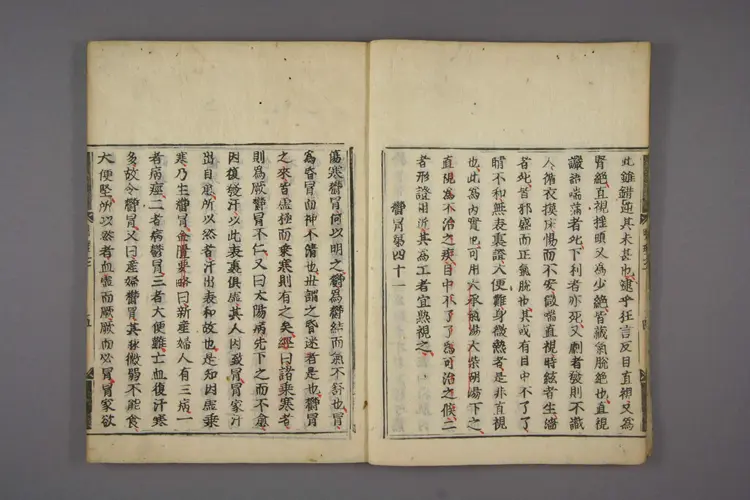 此雖錯逆其未甚也逮乎狂言反目直視又為
腎絕直視搖頭又為心絕皆藏氣脫絕也直視
讝語喘滿者死下利者亦死又劇者發則不識
人循衣摸床惕而不安微喘直視脉弦者生濇
者死皆邪盛而正氣脫也其或有目中不了了
睛不和無表裏證大便難身微熱者是非直視
也此為內實也可用大承氣湯大柴胡湯下之
直視為不治之疾目中不了了為可治之候二
者形證相近其為工者宜熟視之
鬱冒第四十一
傷寒鬱冒何以明之鬱為鬱結而氣不舒也冒
為昏冒而神不清也世謂之昏迷者是也鬱冒
之來皆虛極而乘寒則有之矣經曰諸乘寒者
則為厥鬱冒不仁又曰太陽病先下之而不愈
因復發汗以此表裏俱虛其人因致冒冒家汗
出自愈所以然者汗出表和故也是知因虛乘
寒乃生鬱冒金匱要略曰新產婦人有三病一
者病痙二者病鬱冒三者大便難亡血復汗寒
多故令鬱冒又曰產婦鬱冒其脉微弱不能食
大便堅所以然者血虛而厥厥而必冒冒家欲